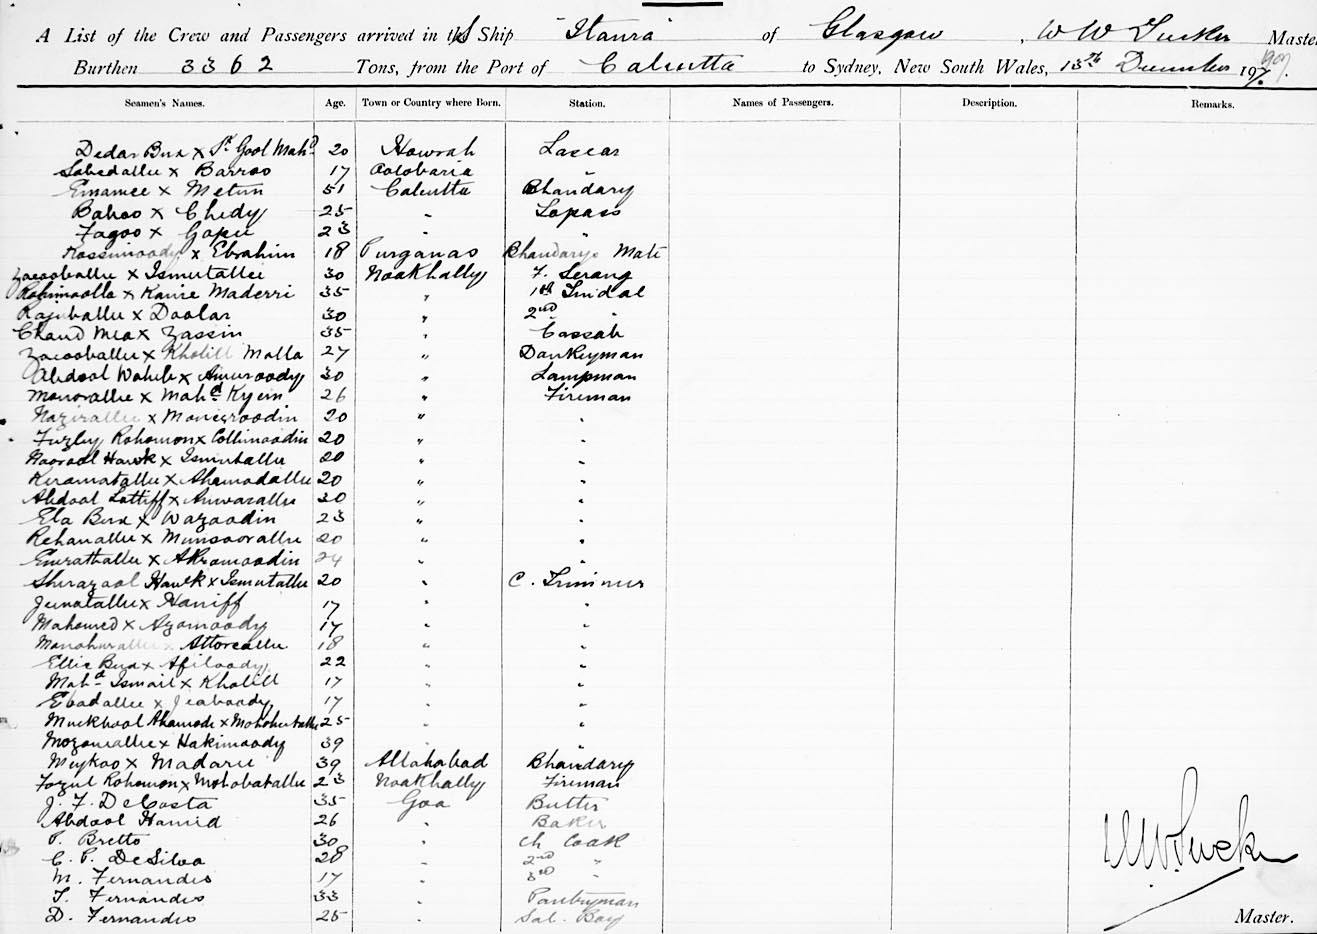 A List of the Crew and Passengers arrived in the Ship "Itaura of Glasgow, W W Tucker Master
Burthen 3362 Tons, from the Port of Calcutta to Sydney, New South Wales, 13th December 1907.
Seamen's Names. Age. Town or Country where Born. Station. Names of Passengers. Description. Remarks.
Dedar Bux x Sk. Gool Mahd 20 Howrah Lascar
x Barroo 17 "
Emamee x 51 Calcutta Bhandary
Bahoo x Chedy 25 " Topass
Fagoo x Gopee 23 " "
Kassimoody x Ebrahim 18 Purganas Bhandarys Mate
Zacooballee x Ismutallee 30 Noakhally F. Serang
Rohimoolla x Maderri 35 " 1st Tindal
Rajuballee x Doolar 30 " 2nd "
Chand Mea x Zassin 35 " Cassab
Zacooballee x Kholill Molla 27 " Donkeyman
Abdool Wohib x 30 " Lampman
Monorallee x Mahd Kyem 26 " Fireman
Nazirallee x 20 " "
Fuzley Rohomon x Collimoodin 20 " "
Noorool Hawk x Ismutallee 20 " "
Keramatallee x Ahamadallee 20 " "
Abdool Lattiff x Anwarallee 30 " "
Ela Bux x Wazoodin 23 " "
Rehanallee x Munsoorallee 20 " "
x Akramoodin 24 " "
Shirazool Hawk x Ismutallee 20 " C. Trimmer
x Haniff 17 " "
Mahomed x Azomoody 17 " "
Monohurallee x Attorallee 18 " "
Ellie Bux x Afiloody 22 " "
Mahd Ismail x Kholill 17 " "
Ebadallee x Jeaboody 17 " "
Muckbool Ahamode x 25 " "
Mozomallee x Hakimoody 39 " "
Meykoo x Madaree 39 Allahabad Bhandary
Fozul Rohomon x Mohobatallee 23 Noakhally Fireman
J. F. DeCosta 35 Goa Butler
Abdool Hamid 26 " Baker
P. Bretto 30 " Ch Cook
C. P. DeSilva 28 " 2nd "
M. Fernandis 17 " 3rd "
T. Fernandis 33 " Pantryman
D. Fernandis 25 " Sal. Boy
W. W. Tucker
Master.